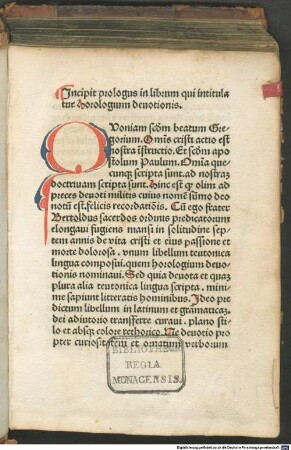 Incipit prologus in librum qui intitula
tur horologium deuotionis.
QVoniam scďm beatum Gre-
gorium. Om̄is cristi actio est
nostra īstructio. Et scďm apo
stolum Paulum. Om̄ia que-
cunq̄ scripta sunt. ad nostraʒ
doctrinam scripta sunt. hinc est ꝙ olim ad
preces deuoti militis cuius nomē sūmo deo
notū est. felicis recordatiōis. Cū ego frater
Bertoldus sacerdos ordinis predicatorum
elongaui fugiens mansi in solitudine sep
tem annis de vita cristi et eius passione et
morte dolorosa. vnum libellum teutonica
lingua composui. quem horologium deuo-
tionis nominaui. Sed quia deuota et quaʒ
plura alia teutonica lingua scripta. mini-
me sapiunt litteratis hominibus. Ideo pre
dictum libellum in latinum et grammaticaʒ
dei adiutorio transferre curaui. plano sti-
lo et absq̄ colore rethorico. Ne deuotio pro
pter curiositatem et ornatum verborum
BIBLIOTHECA
REGIA
MONACENSIS.